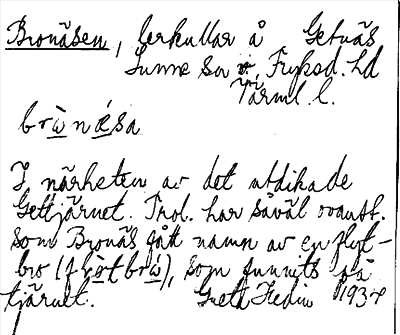 Bronäsen, lerkullar å Getnäs
Sunne sn, Fryksd. hd
Värml. l.
brὼnæ̀sa
I närheten av det utdikade
Gettjärnet. Trol. har såväl ovanst.
som Bronäs gått namn av en flyt-
bro (flötbrὼ), som funnits på
tjärnet. Greta Hedin 1934